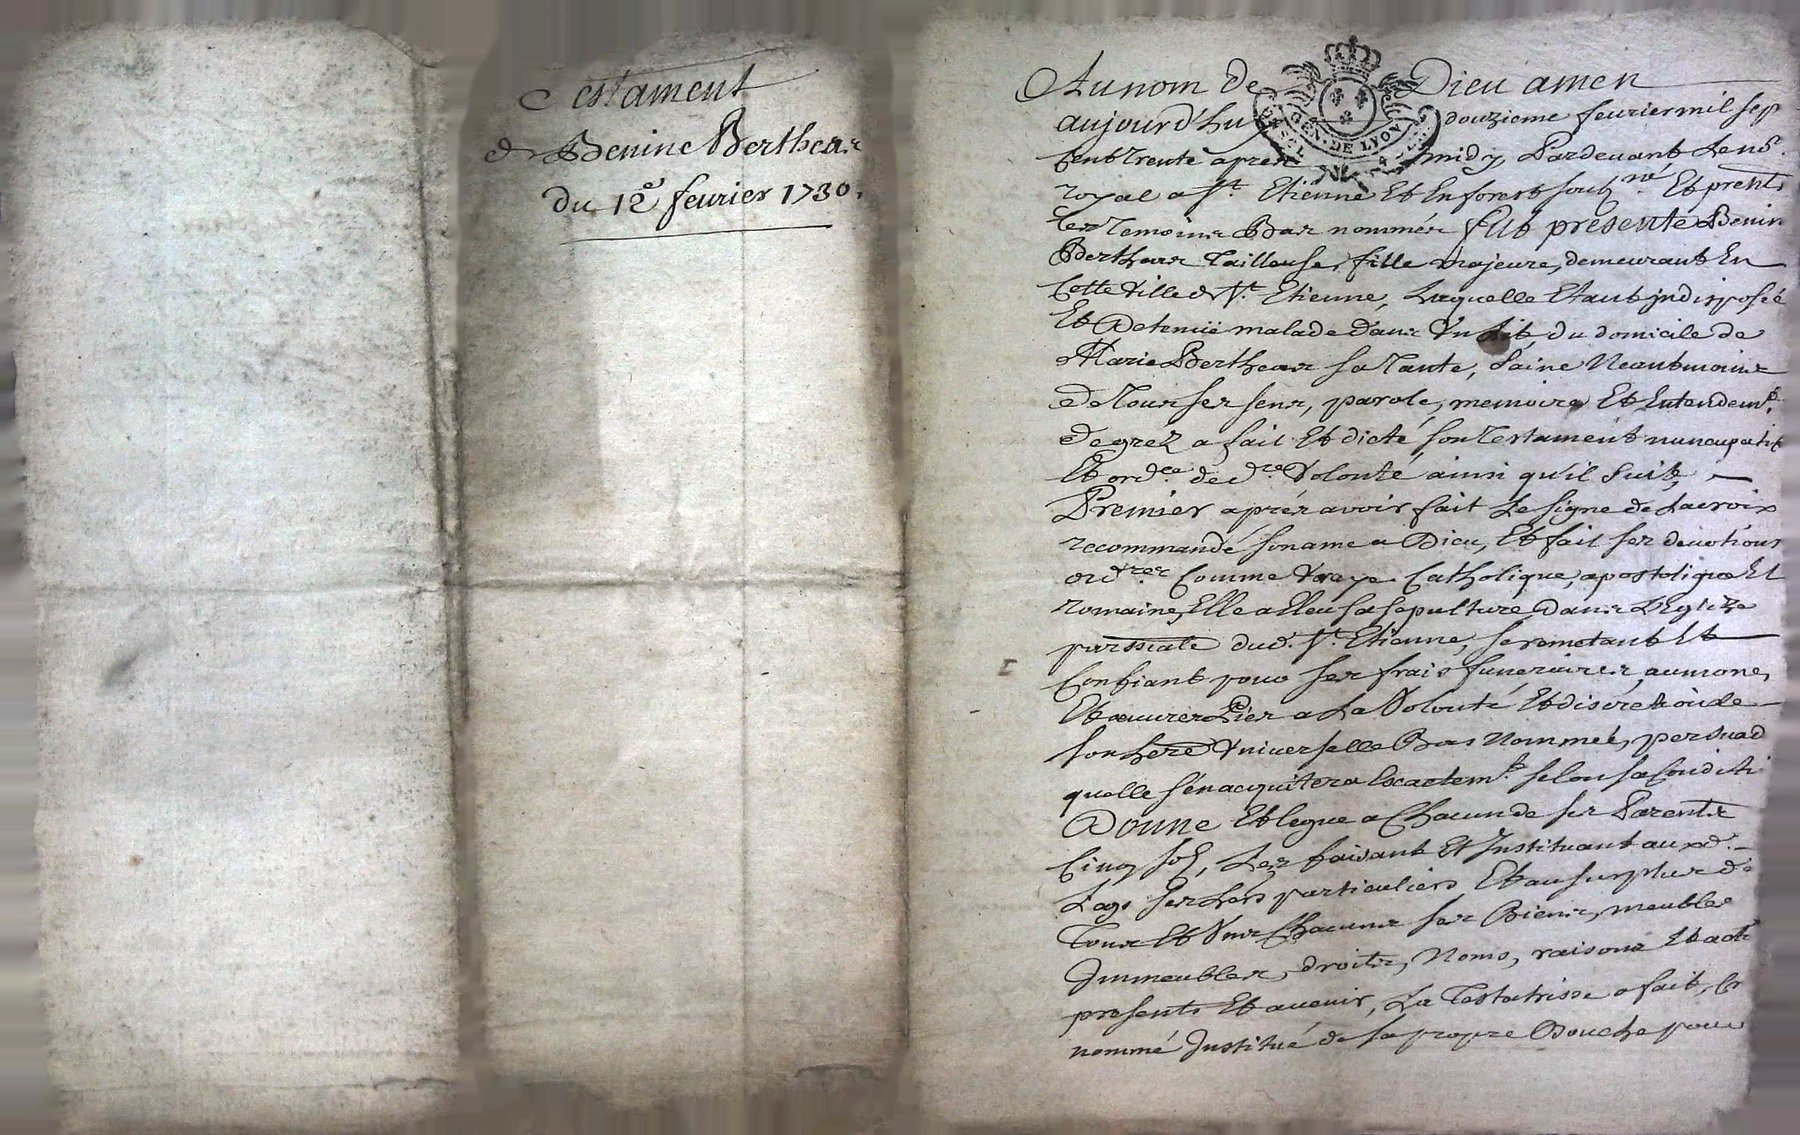 Testament
de Benine Berthear
du 12e feurier 1730.
Au nom de Dieu amen
aujourd'huy douzieme feurier mil sep
cent trente apres midy Pardeuant Le no.re
royal a St. Etienne Et En forest sousig.né Et presents
Les Temoins Bas nommés fut presente Benin
Berthear Tailleuse, fille majeure, demeurant En
Cette Ville de St. Etienne, Laquelle Etant jndisposée
Et Detenüe malade dans Vn Lit, du domicile de
Marie Berthear sa Tante, Saine Neantmoins
de Tous ses sens, parole, memoire Et Entendem.t
De grez a fait Et dicté son Testament nuncupatif
Et ord.ce de d.re Volonté ainsi qu'il suit,
Premier aprés avoir fait Le signe de Lacroix
recommandé son ame a Dieu, Et fait ses deuotions
ord.res Comme Vraye Catholique, apostolique Et
romaine, Elle a Eleu sa sepulture dans L'Eglize
parssiale dud. St. Etienne, se remetant Et
Confiant pour ses frais funeraires, aumones,
Et œuures Pies a La Volonté Et discretion de
son here Vniuerselle Bas Nommeé, persuad
quelle s'en acquitera Exactem.t selon sa Conditi
Donne Et legue a Chacun de ses Parents
Cinq sols, Les faisant Et Instituant aux d.
Legs ses hers particuliers Et au surplus de
Tous Et Vns Chacuns ses Biens, meubles
Immeubles, droits, Noms, raisons Et act
presents Et auenir, La Testatrisse a fait, Cr
nommé Institué de sa propre Bouche pour
GEN. DE LYON